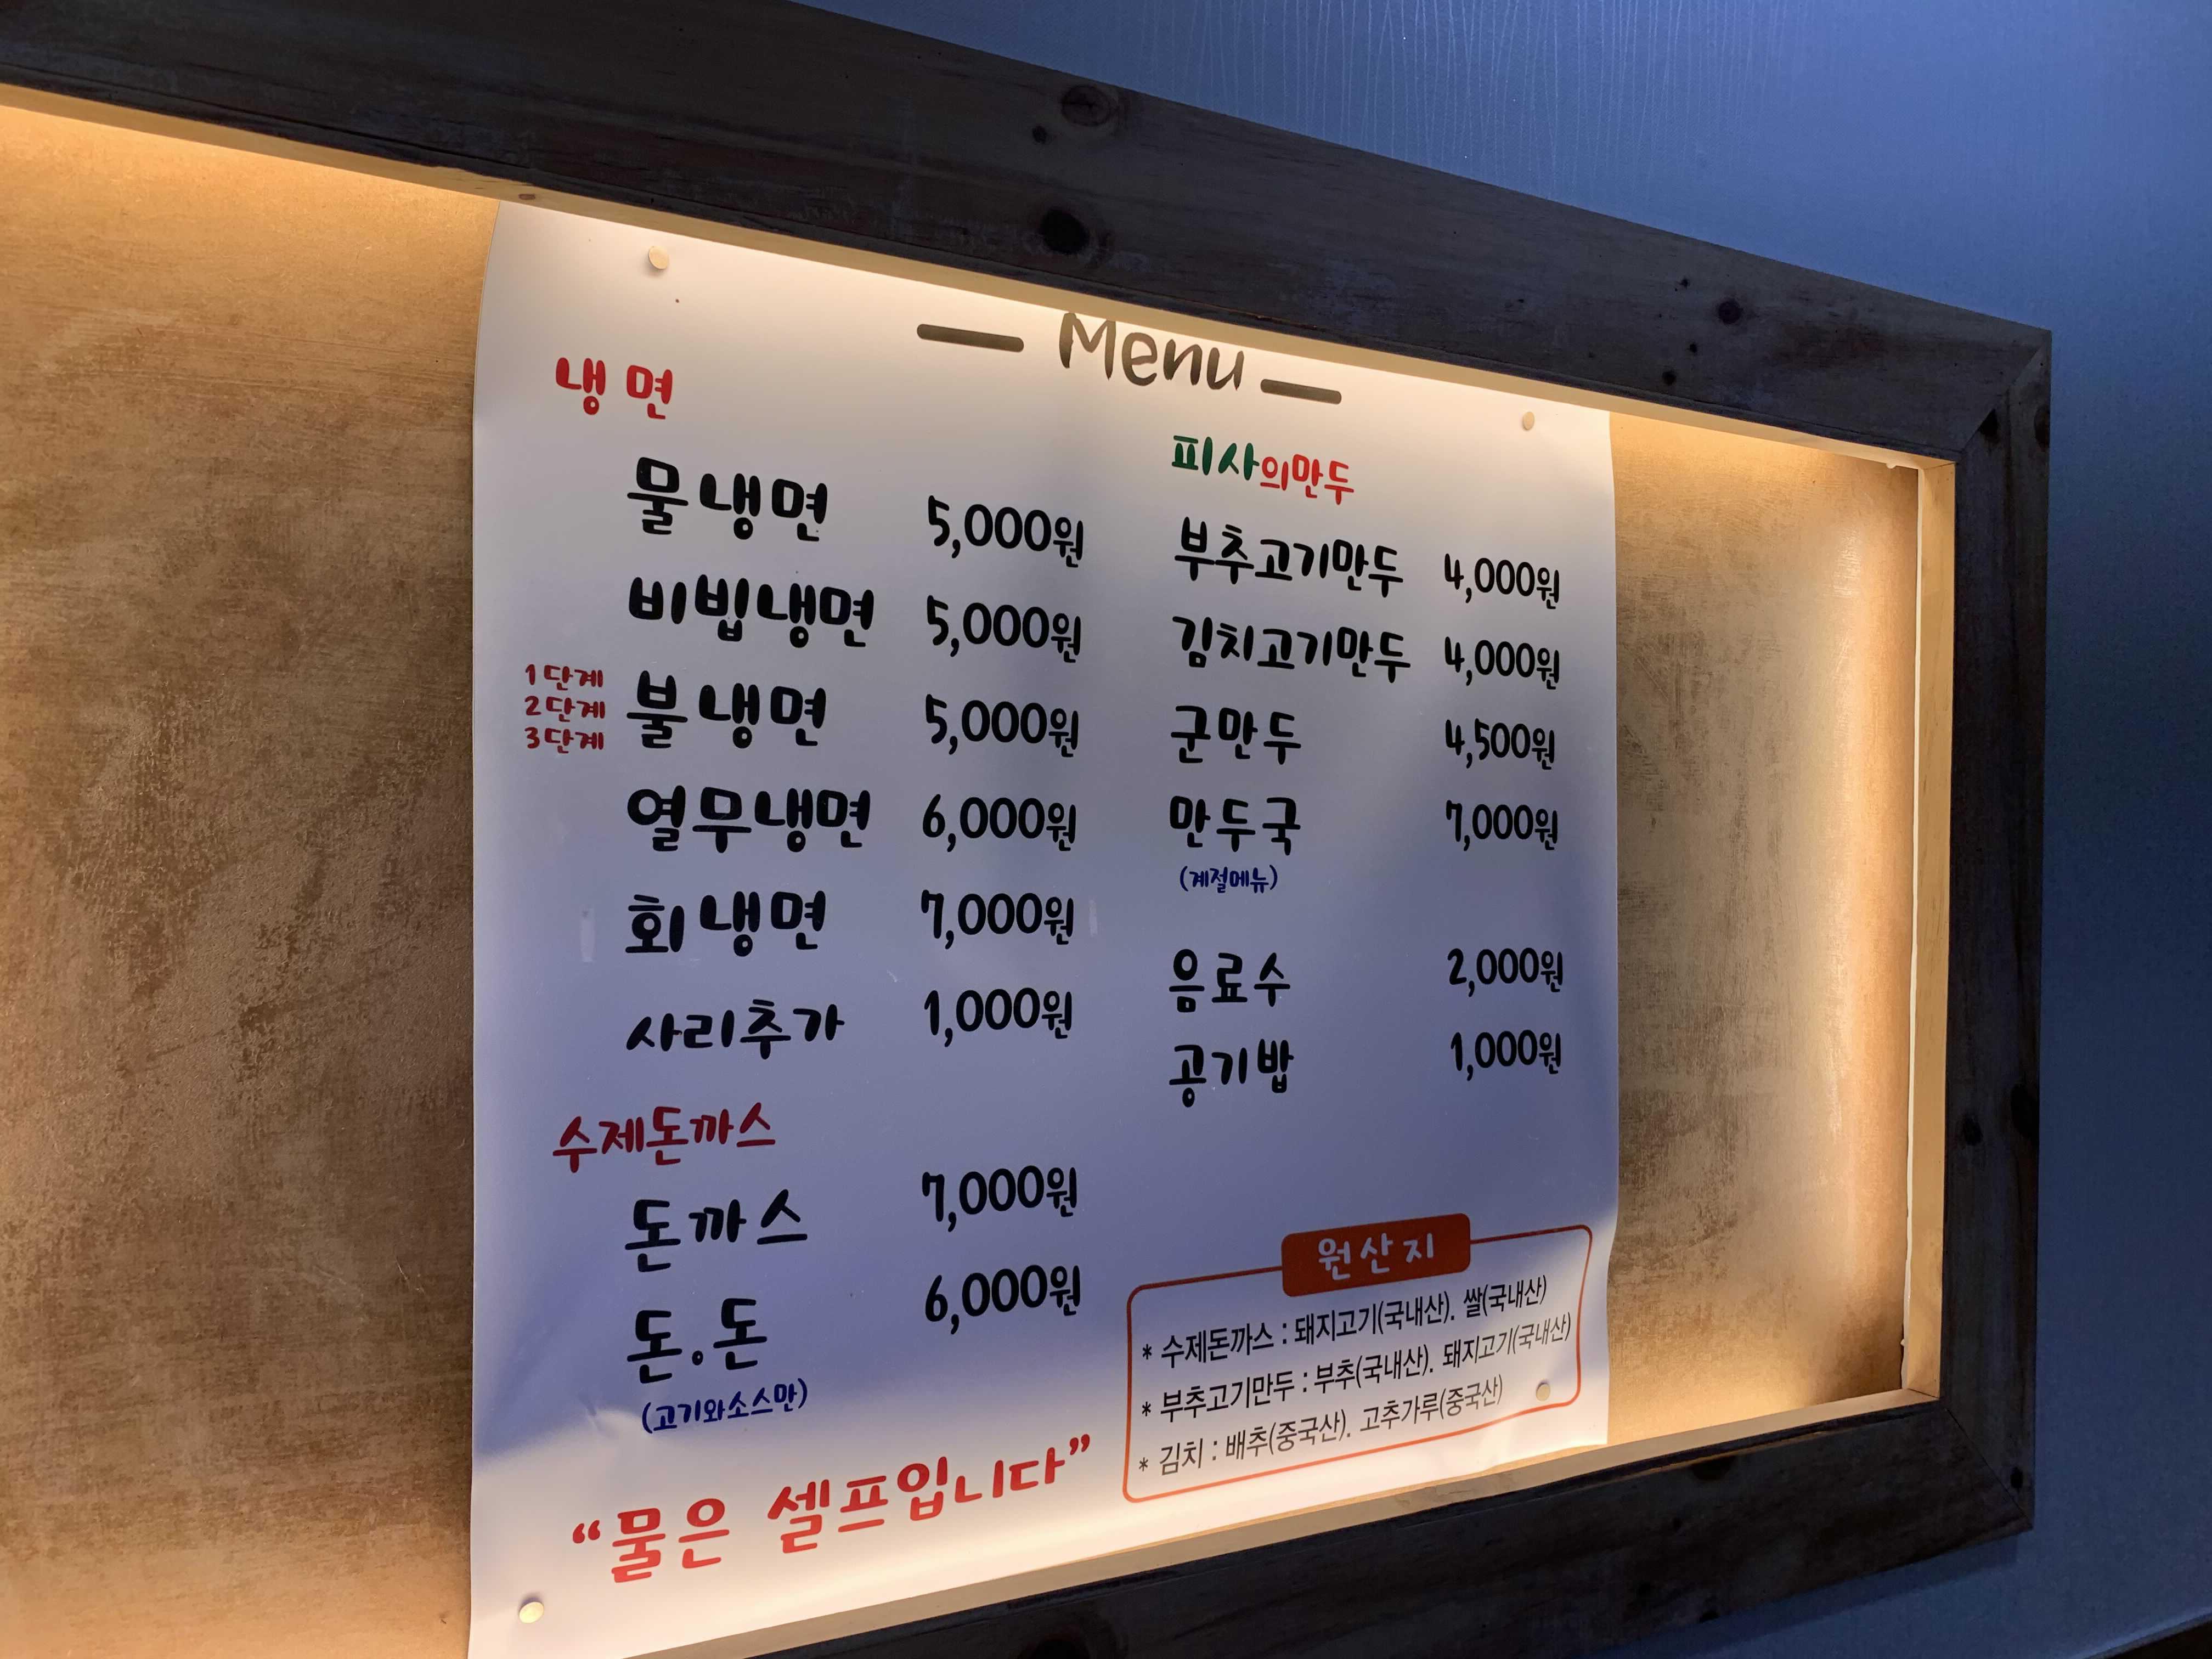 Menu
냉면
물냉면 5,000원
비빔냉면 5,000원
1단계
2단계
3단계
불냉면 5,000원
열무냉면 6,000원
회냉면 7,000원
사리추가 1,000원
수제돈까스
돈까스 7,000원
돈.돈 6,000원
(고기와소스만)
피사의만두
부추고기만두 4,000원
김치고기만두 4,000원
군만두 4,500원
만두국 7,000원
(계절메뉴)
음료수 2,000원
공기밥 1,000원
원산지
* 수제돈까스 : 돼지고기(국내산). 쌀(국내산)
* 부추고기만두 : 부추(국내산). 돼지고기(국내산)
* 김치 : 배추(중국산). 고추가루(중국산)
“물은 셀프입니다”